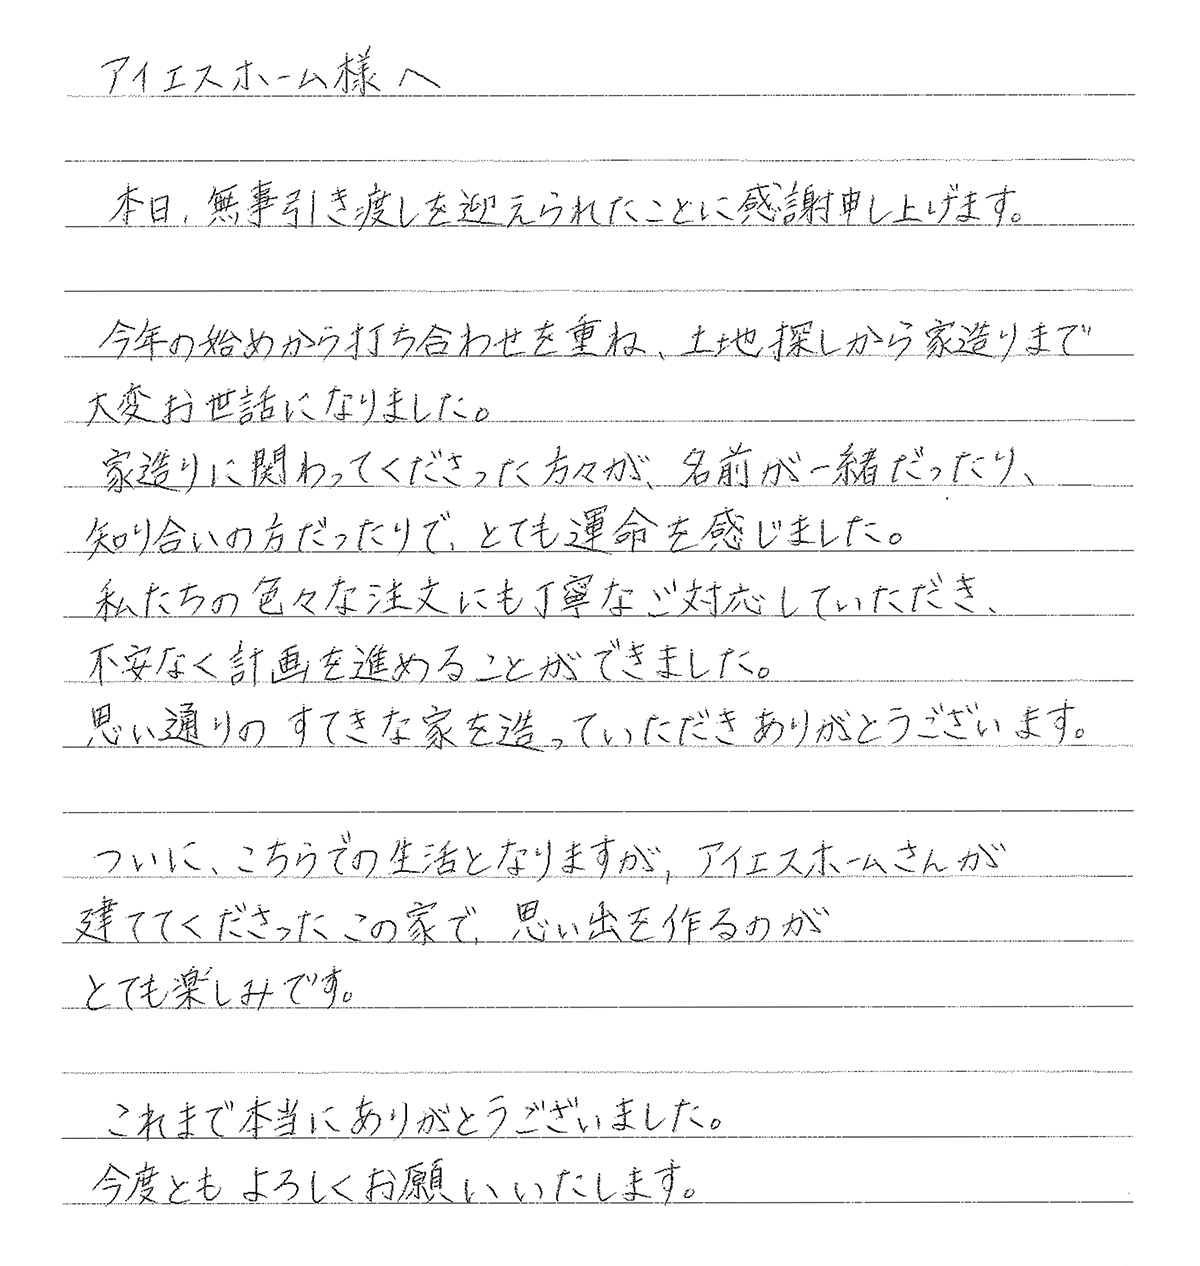 アイエスホーム様へ
本日、無事引き渡しを迎えられたことに感謝申し上げます。
今年の始めから打ち合わせを重ね、土地探しから家造りまで
大変お世話になりました。
家造りに関わってくださった方々が、名前が一緒だったり、
知り合いの方だったりで、とても運命を感じました。
私たちの色々な注文にも丁寧なご対応していただき、
不安なく計画を進めることができました。
思い通りのすてきな家を造っていただきありがとうございます。
ついに、こちらでの生活となりますが、アイエスホームさんが
建ててくださったこの家で、思い出を作るのが
とても楽しみです。
これまで本当にありがとうございました。
今度ともよろしくお願いいたします。